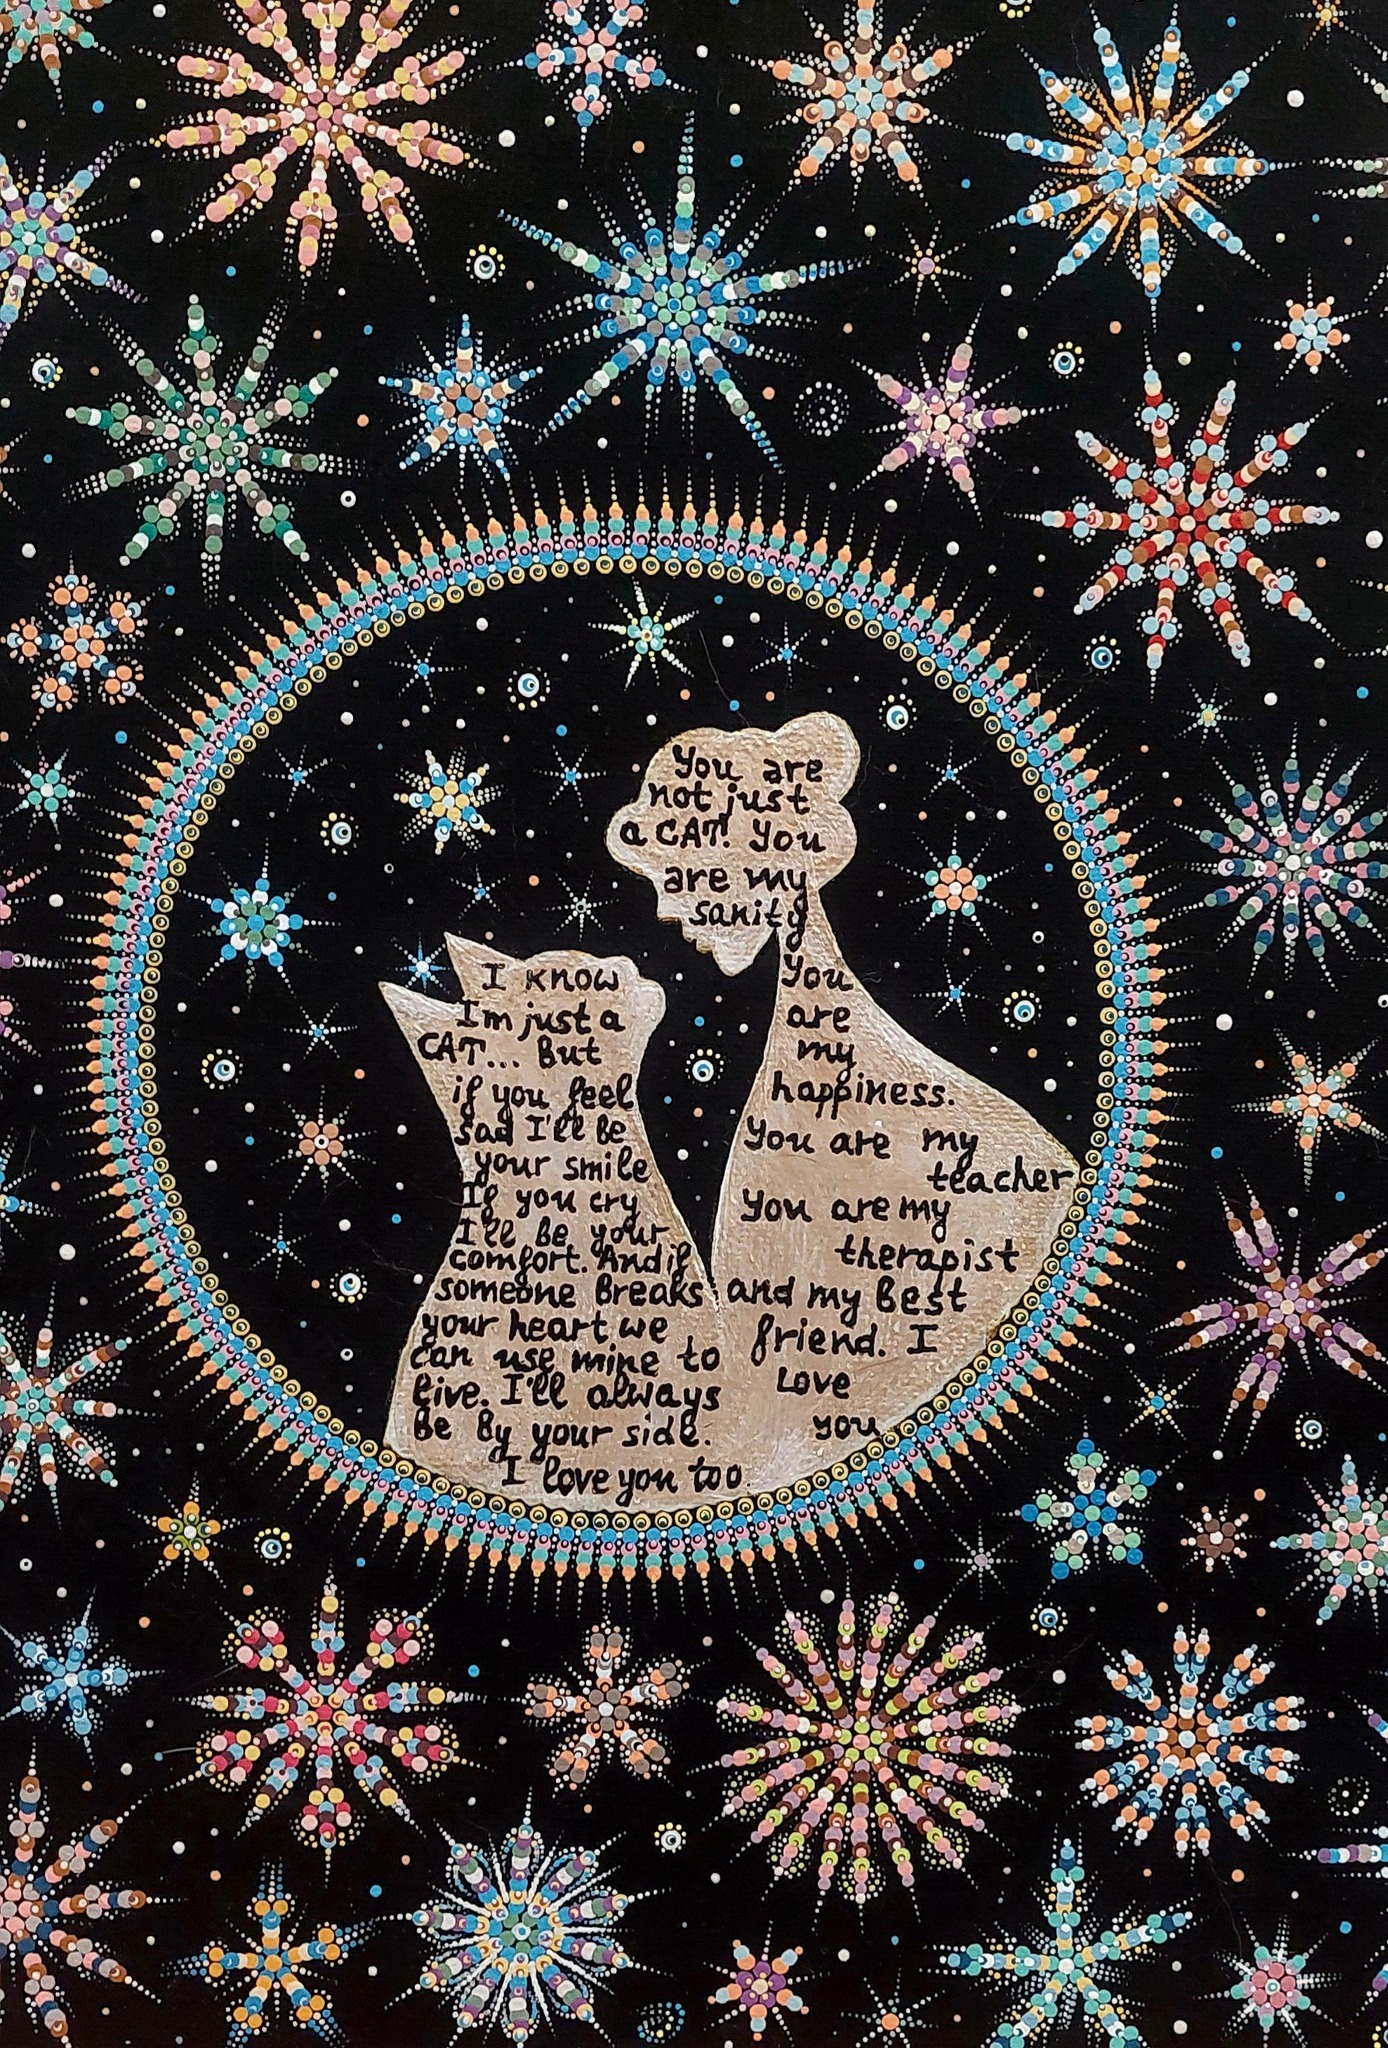 I know
Im just a
CAT... But
if you feel
sad I'll be
your smile
If you cry
I'll be your
comfort. And if
someone breaks
your heart we
can use mine to
live. I'll always
be by your side.
I love you too.
You are
not just
a CAT! You
are my
sanity
You
are
my
happiness.
You are my
teacher
You are my
therapist
and my best
friend. I
Love
you